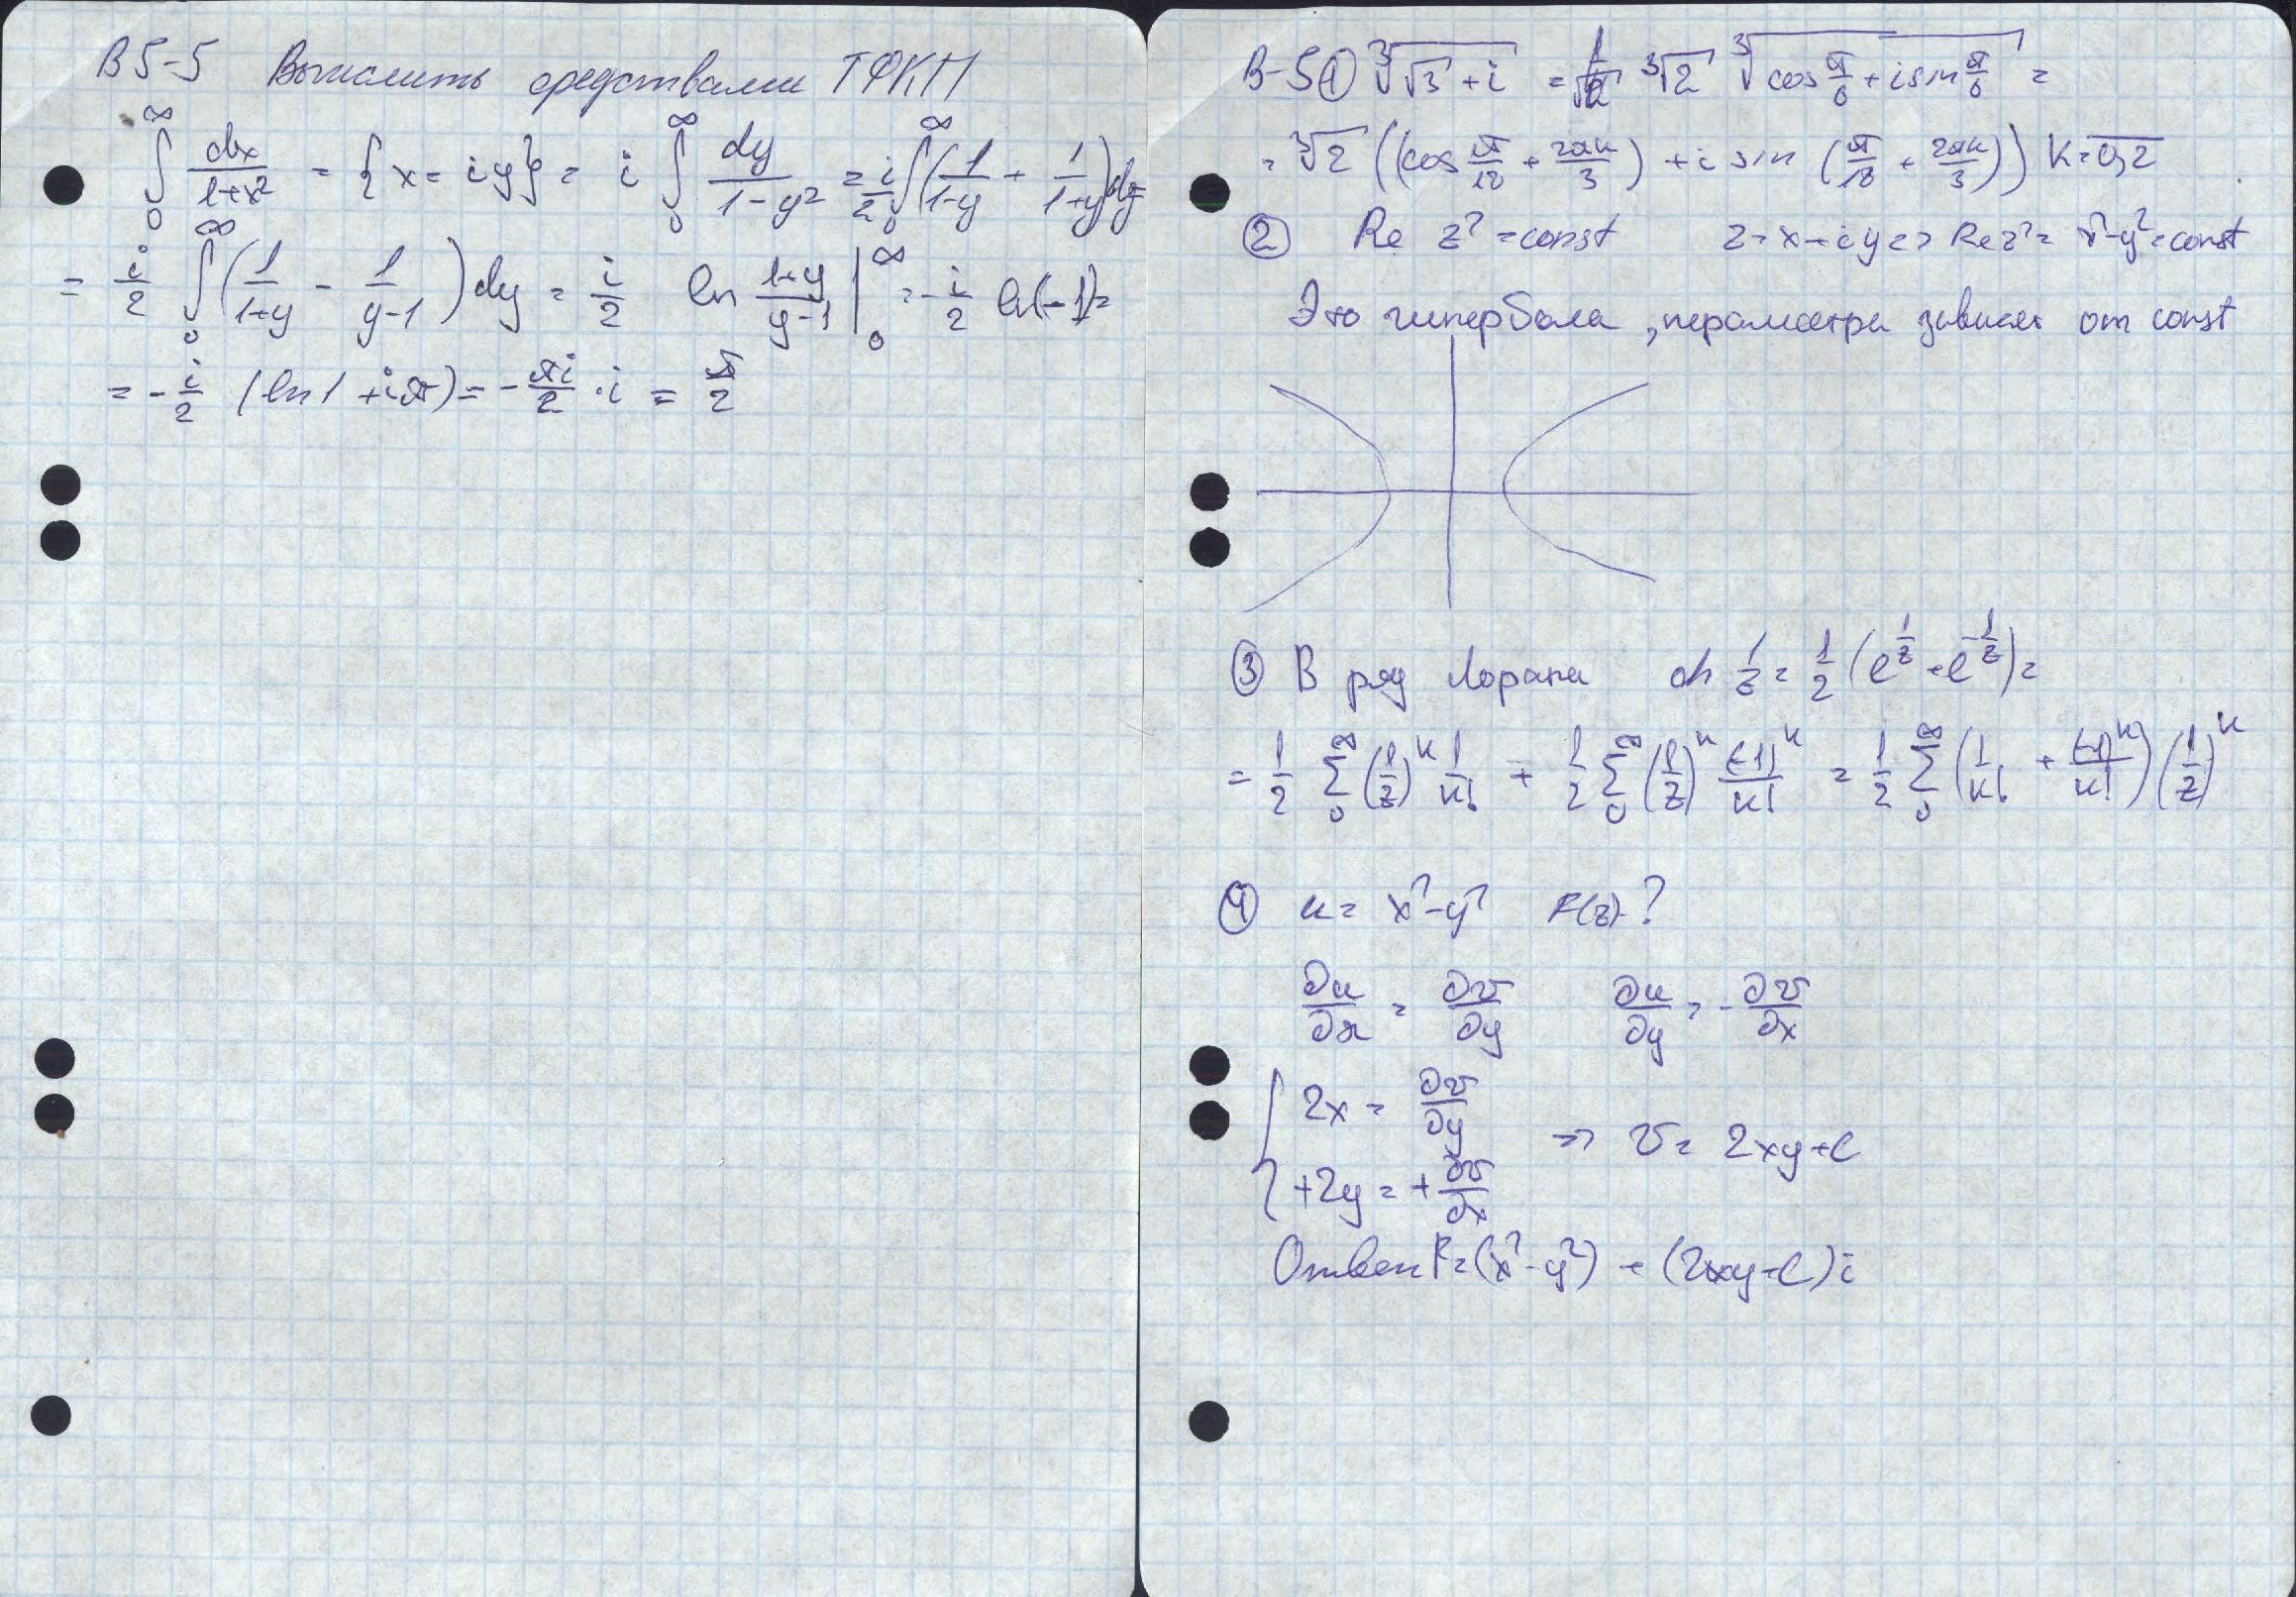 В5-5 Вычислить средствами ТФКП
∫₀^∞ dx/(1+x²) = {x = iy} = i ∫₀^∞ dy/(1-y²) = i/2 ∫₀^∞ (1/(1-y) + 1/(1+y)) dy =
= i/2 ∫₀^∞ (1/(1+y) - 1/(y-1)) dy = i/2 ln (1+y)/(y-1) |₀^∞ = -i/2 ln(-1) =
= -i/2 (ln1 + iπ) = -πi/2 · i = π/2
В-5 ① ∛(√3 + i) = ∛2 ∛(cos π/6 + i sin π/6) =
= ∛2 ((cos π/18 + 2πk/3) + i sin (π/18 + 2πk/3)) k = 0,2
② Re z² = const z = x + iy => Re z² = x²-y² = const
Это гипербола, параметры зависят от const
③ В ряд Лорана ch 1/z = 1/2 (e^(1/z) + e^(-1/z)) =
= 1/2 Σ₀^∞ (1/z)^k 1/k! + 1/2 Σ₀^∞ (1/z)^k (-1)^k/k! = 1/2 Σ₀^∞ (1/k! + (-1)^k/k!) (1/z)^k
④ u = x²-y² F(z)-?
∂u/∂x = ∂v/∂y ∂u/∂y = -∂v/∂x
{ 2x = ∂v/∂y
+2y = +∂v/∂x => v = 2xy+C
Ответ F = (x²-y²) + (2xy+C)i